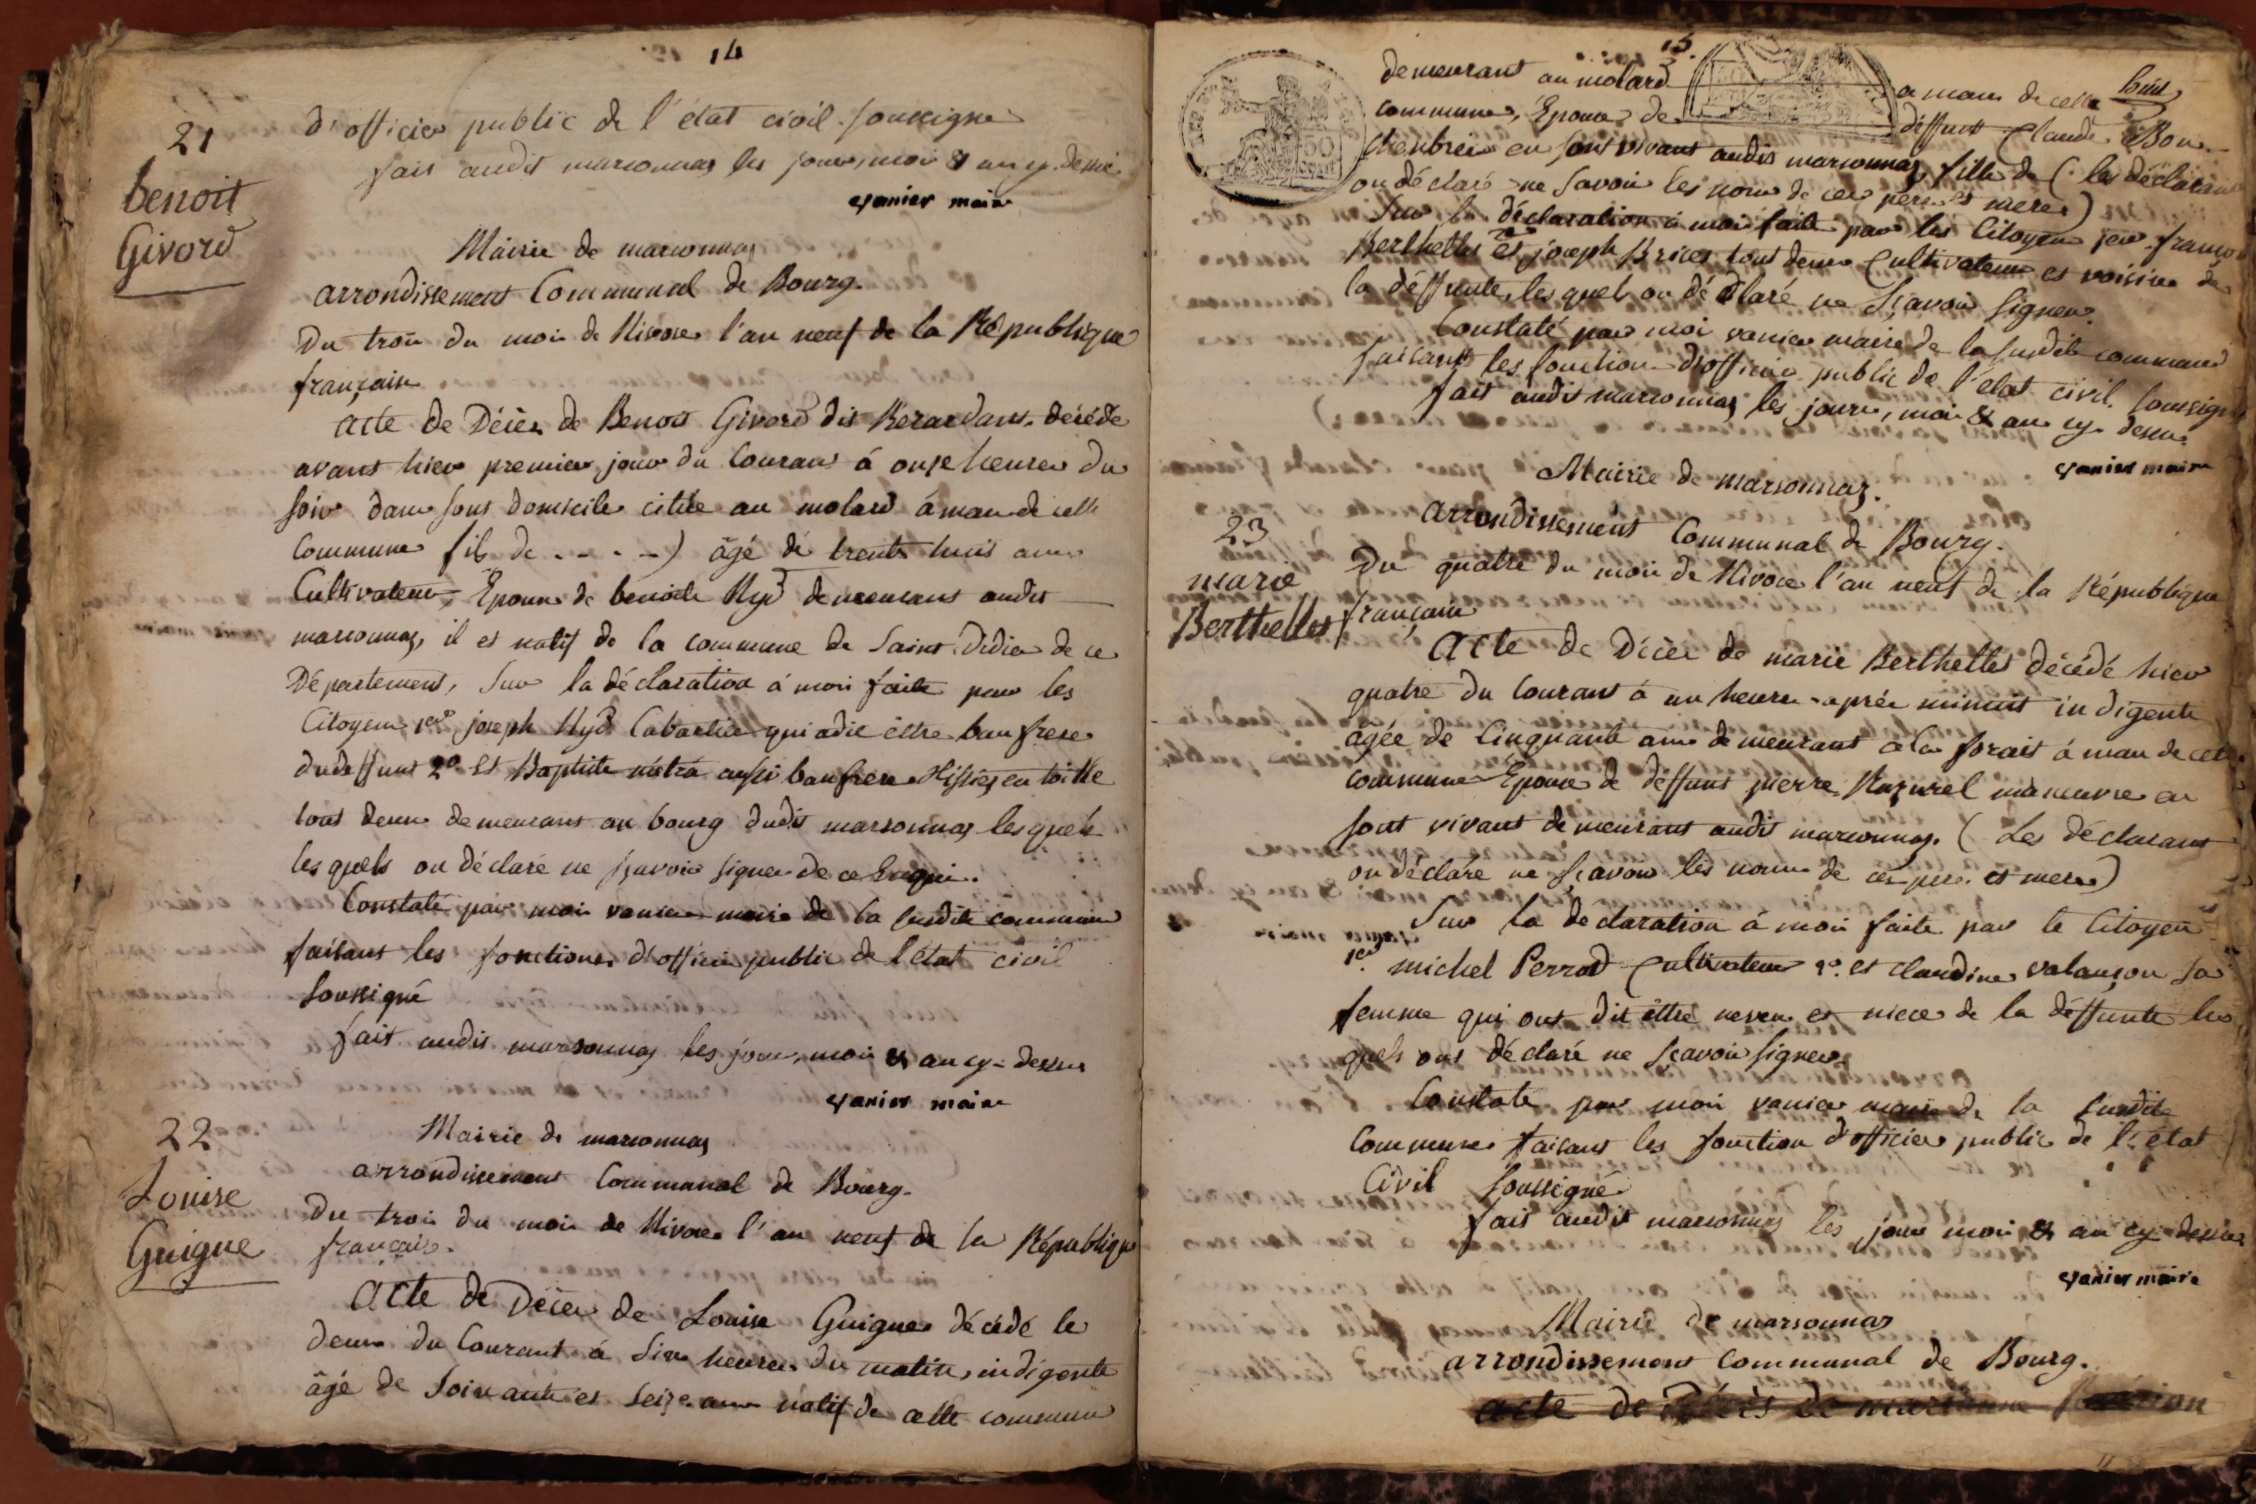 14
d'officier public de l'état civil soussigné
fait audit marsonnas les jour, moi & an cy-dessus
vanier maire
21
benoit
Givord
Mairie de marsonnas
arrondissement Communal de Bourg.
Du trois du mois de Nivose l'an neuf de la République
française
acte de Décès de Benoit Givord dit Berardant, décédé
avant hier premier jour du Courant á onze heures du
soir dans sont domicile citúe au molard á man de cette
Commune fils de . - . - ) âgé de trente huit ans
Cultivateur, Epoux de benoite Nyd demeurant audit
marsonnas, il es natif de la commune de Saint Didier de ce
Département, Sur la déclaration á moi faite par les
Citoyens 1er joseph Nyd Cabartier qui a dit être baufrere
dudeffunt 2o et Baptiste
tous deux demeurant au bourg dudit marsonnas lesquels
lesquels on déclaré ne sçavoir signer de ce Enquis.
Constaté par moi vanier maire de la susdite commune
faisant les fonctions d'officier public de l'état civil
soussigné
fait audit marsonnas les jour, moi & an cy-dessus
vanier maire
22
Louise
Guigue
Mairie de marsonnas
arrondissement Communal de Bourg.
Du trois du mois de Nivose l'an neuf de la République
français.
acte de Décès de Louise Guigue décédé le
deux du Courant á Six heures du matin, indigente
âgé de soixante et seize ans natif de cette commune
15.
huit
demeurant au molard a man de cette
commune, Epouse de deffunt Claude Bon
en sont vivant audit marsonnas, fille de ( les déclarant
on déclaré ne savoir les noms de ces pere et mere)
Sur la déclaration á moi faite par les Citoyens jean françois
Berthelles et joseph Brices tout deux Cultivateur et voisins de
la déffunte, lesquels on déclaré ne Sçavoir signer.
Constaté par moi vanier maire de la susdite commune
faisant les fonction d'officier public de l'état civil soussigné
fait audit marsonnas les jours, moi & an cy dessus
vanier maire
Mairie de marsonnas.
arrondissement Communal de Bourg.
23
marie
Berthelles
Du quatre du mois de Nivose l'an neuf de la République
française
acte de Décès de marie Berthelles décédé hier
quatre du Courant á un heure après minuit indigente
âgée de Cinquante ans demeurant a la forait á man de cette
commune Epouse de déffunt pierre maneuvre en
sont vivant demeurant audit marsonnas. ( Les déclarant
on déclaré ne sçavoir les noms de ces pere et mere)
Sur la déclaration á moi faite par le Citoyen
1er michel Perrod Cultivateur 2o. et claudine valançon sa
femme qui ont dit être neveu et niece de la déffunte les
quels ont déclaré ne sçavoir signer
Constaté par moi vanier maire de la susdite
Commune faisant les fonction d'officier public de l'état
Civil soussigné
fait audit marsonnas les jour moi & an cy dessus
vanier maire
Mairie de marsonnas
arrondissement communal de Bourg.
acte de Décès de